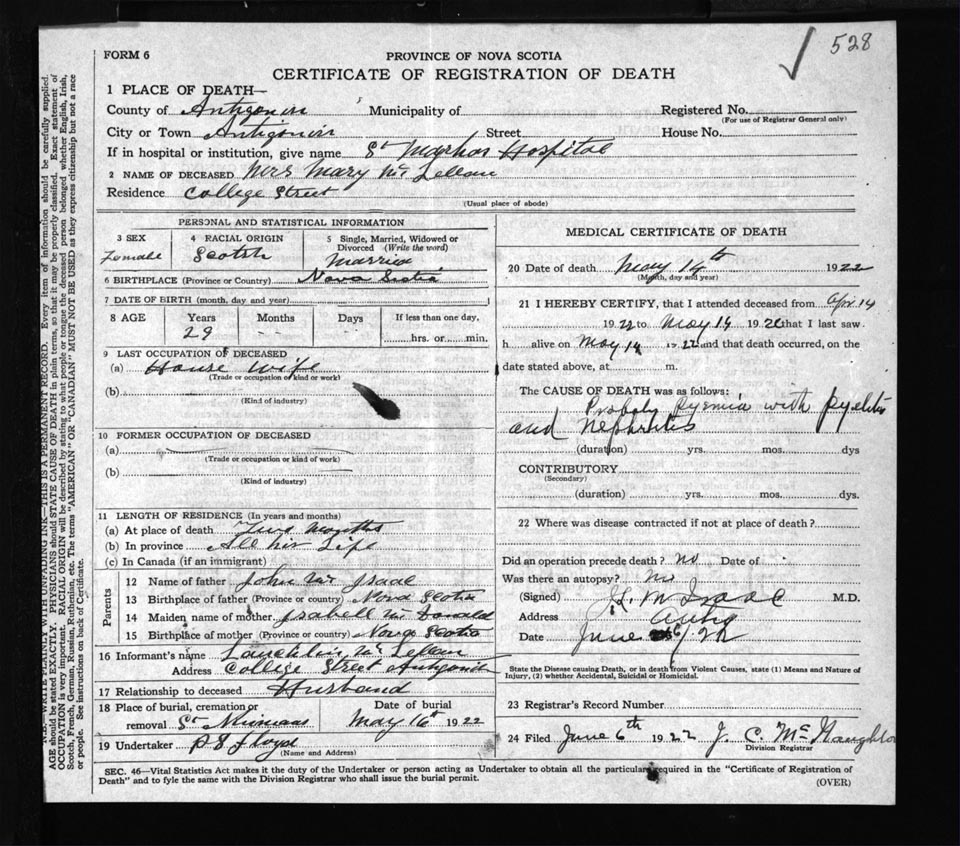 528
FORM 6
PROVINCE OF NOVA SCOTIA
CERTIFICATE OF REGISTRATION OF DEATH
1 PLACE OF DEATH—
County of Antigonish Municipality of Registered No.
(For use of Registrar General only)
City or Town Antigonish Street House No.
If in hospital or institution, give name St Marthas Hospital
2 NAME OF DECEASED Mrs Mary Mc Lellan
Residence College Street
(Usual place of abode)
PERSONAL AND STATISTICAL INFORMATION
3 SEX
Female
4 RACIAL ORIGIN
Scotch
5 Single, Married, Widowed or
Divorced (Write the word)
Married
6 BIRTHPLACE (Province or Country) Nova Scotia
7 DATE OF BIRTH (month, day and year)
8 AGE Years Months Days If less than one day,
29 - - hrs. or min.
9 LAST OCCUPATION OF DECEASED
(a) House Wife
(Trade or occupation or kind or work)
(b)
(Kind of industry)
10 FORMER OCCUPATION OF DECEASED
(a)
(Trade or occupation or kind of work)
(b)
(Kind of industry)
11 LENGTH OF RESIDENCE (In years and months)
(a) At place of death Two Months
(b) In province All his Life
(c) In Canada (if an immigrant)
Parents
12 Name of father John Mc Isaac
13 Birthplace of father (Province or country) Nova Scotia
14 Maiden name of mother Isabell Mc Donald
15 Birthplace of mother (Province or country) Nova Scotia
16 Informant's name Lauchlin Mc Lellan
Address College Street Antigonish
17 Relationship to deceased Husband
18 Place of burial, cremation or Date of burial
removal St May 16th 1922
19 Undertaker P S Floyd
(Name and Address)
MEDICAL CERTIFICATE OF DEATH
20 Date of death May 14th 1922
(Month, day and year)
21 I HEREBY CERTIFY, that I attended deceased from Apr. 14
1922 to May 14 192 that I last saw
h alive on May 14 1922 and that death occurred, on the
date stated above, at m.
The CAUSE OF DEATH was as follows:
Probaly Pyemia with pyelitis
and Nephritis
(duration) yrs. mos. dys
CONTRIBUTORY
(Secondary)
(duration) yrs. mos. dys.
22 Where was disease contracted if not at place of death?
Did an operation precede death? no Date of
Was there an autopsy? no
(Signed) M Isaac M.D.
Address Antig
Date June 6/22
State the Disease causing Death, or in death from Violent Causes, state (1) Means and Nature of
Injury, (2) whether Accidental, Suicidal or Homicidal.
23 Registrar's Record Number
24 Filed June 6th 1922 J. C. McNaughton
Division Registrar
SEC. 46—Vital Statistics Act makes it the duty of the Undertaker or person acting as Undertaker to obtain all the particulars required in the "Certificate of Registration of
Death" and to fyle the same with the Division Registrar who shall issue the burial permit.
(OVER)
N.B.—WRITE PLAINLY WITH UNFADING INK—THIS IS A PERMANENT RECORD. Every item of information should be carefully supplied.
AGE should be stated EXACTLY. PHYSICIANS should STATE CAUSE OF DEATH in plain terms, so that it may be properly classified. Exact statement of
OCCUPATION is very important. RACIAL ORIGIN will be described by stating to what people or tongue the deceased person belonged, whether English, Irish,
Scotch, French, German, Russian, Ruthenian, etc. The terms "AMERICAN" OR "CANADIAN" MUST NOT BE USED as they express citizenship but not a race
or people. See instructions on back of Certificate.